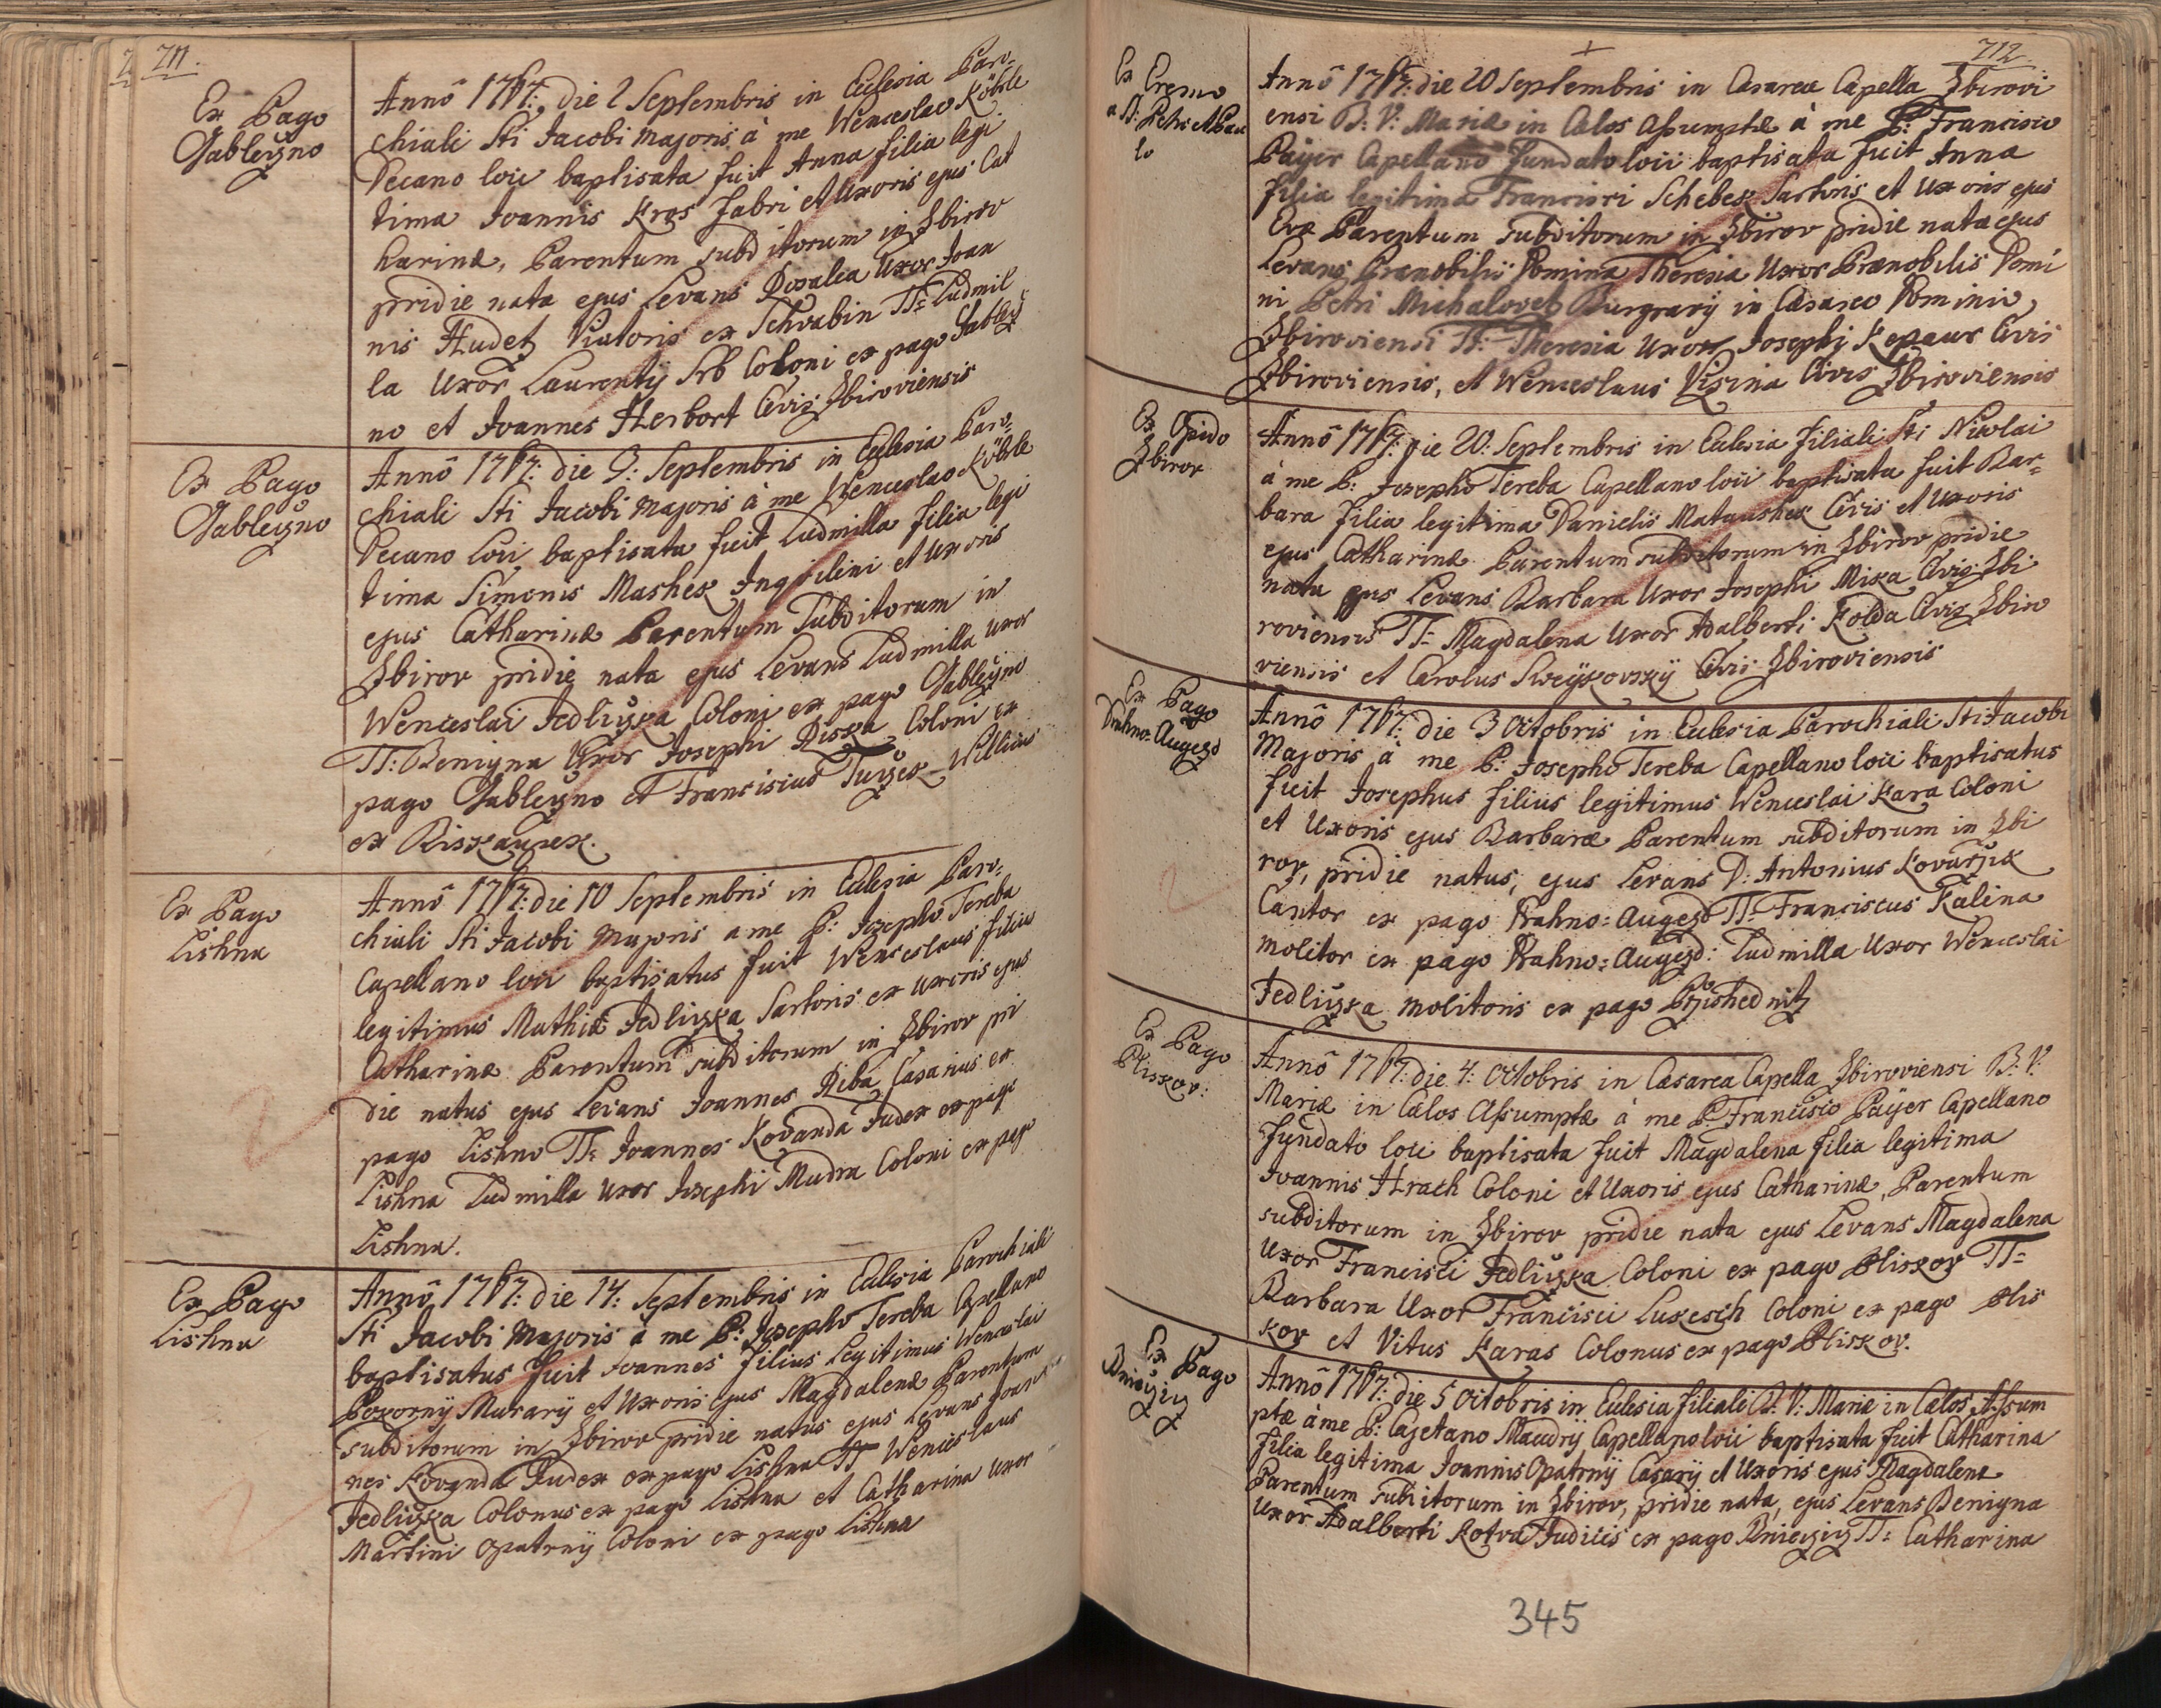 711.
Ex Pago
Jableczno
Annô 1767: die 2 Septembris in Ecclesia Paro-
chiali Sti Jacobi Majoris à me Wenceslao Köhle
Decano loci baptisata fuit Anna filia legi
tima Joannis Kros Fabri et Uxoris ejus Cat
harinæ, Parentum subditorum in Zbirov
pridie nata ejus Levans Rosalia Uxor Joan
nis Hudetz Viatoris ex Schvabin TT: Ludmil
la Uxor Laurentij Srb Coloni ex pago Jablecz
no et Joannes Herbort Civis Zbiroviensis
Ex Pago
Jableczno
Annô 1767: die 9: Septembris in Ecclesia Paro-
chiali Sti Jacobi Majoris à me Wenceslao Köhle
Decano Loci baptisata fuit Ludmilla filia legi
tima Simonis Mashek Inquilini et Uxoris
ejus Catharinæ Parentum Subditorum in
Zbirov pridie nata ejus Levans Ludmilla Uxor
Wenceslai Jedliczka Coloni ex pago Jableczno
TT: Benigna Uxor Josephi Riska Coloni ex
pago Jableczno et Franciscus Turzek Villicus
ex Biskaupek.
Ex Pago
Lishna
Annô 1767: die 10 Septembris in Ecclesia Paro-
chiali Sti Jacobi Majoris a me P: Josepho Tereba
Capellano loci baptisatus fuit Wenceslaus filius
legitimus Mathiæ Jedliczka Sartoris et uxoris ejus
Catharinæ Parentum subditorum in Zbirov pri
die natus ejus Levans Joannes Riba Casarius ex
pago Lishno TT: Joannes Kovanda Judex ex pago
Lishna Ludmilla Uxor Josephi Mudra Coloni ex pago
Lishna.
Ex Pago
Lishna
Annô 1767: die 14: Septembris in Ecclesia Parochiali
Sti Jacobi Majoris à me P: Josepho Tereba Capellano
baptisatus fuit Joannes filius Legitimus Wenceslai
Pokornij Murarij et Uxoris ejus Magdalenæ Parentum
subditorum in Zbirov pridie natus ejus Levans Joan
nes Kovanda Judex ex pago Lishna TT Wenceslaus
Jedliczka Colonus ex pago Lishna et Catharina Uxor
Martini Opatrnij Coloni ex pago Lishna
712.
Ex Eremo
a SS: Petri et Pau
lo
Annô 1767: die 20 Septembris in Cæsarea Capella Zbirovi
ensi B: V: Mariæ in Cælos Assumptæ à me P: Francisco
Paÿer Capellano fundato loci baptisata fuit Anna
filia legitima Francisci Schebek Sartoris et Uxoris ejus
Evæ Parentum subditorum in Zbirov pridie nata ejus
Levans Prænobilis Domina Theresia Uxor Prænobilis Domi
ni Petri Michalovetz Burgravij in Cæsareo Dominio
Zbiroviensi TT: Theresia Uxor Josephi Kepaur Civis
Zbiroviensis, et Wenceslaus Visina Civis Zbiroviensis
Ex Opido
Zbirov
Annô 1767: die 20. Septembris in Ecclesia filiali Sti Nicolai
à me P: Josepho Tereba Capellano loci baptisata fuit Bar-
bara filia legitima Danielis Mataushek Civis et Uxoris
ejus Catharinæ Parentum subditorum in Zbirov pridie
nata ejus Levans Barbara Uxor Josephi Mika Civis Zbi
roviensis TT: Magdalena Uxor Adalberti Kolda Civis Zbiro
viensis et Carolus Kreÿkovskij Civis Zbiroviensis
Ex Pago
Drahno-Augezd
Annô 1767: die 3 Octobris in Ecclesia Parochiali Sti Jacobi
Majoris à me P: Josepho Tereba Capellano loci baptisatus
fuit Josephus filius legitimus Wenceslai Kara Coloni
et Uxoris ejus Barbaræ Parentum subditorum in Zbi
rov, pridie natus, ejus Levans D: Antonius Kovarzik
Cantor ex pago Drahno=Augezd TT: Franciscus Kalina
molitor ex pago Drahno=Augezd: Ludmilla Uxor Wenceslai
Jedliczka molitoris ex pago Przishednitz
Ex Pago
Pliskov:
Annô 1767: die 4: Octobris in Cæsarea Capella Zbiroviensi B: V:
Mariæ in Cælos Assumptæ à me P: Francisco Paÿer Capellano
fundato loci baptisata fuit Magdalena filia legitima
Joannis Hrach Coloni et Uxoris ejus Catharinæ, Parentum
subditorum in Zbirov pridie nata ejus Levans Magdalena
Uxor Francisci Jedliczka Coloni ex pago Pliskov TT:
Barbara Uxor Francisci Lukesch Coloni ex pago Plis
kov et Vitus Karas Colonus ex pago Pliskov.
Ex Pago
Kniezkÿ
Annô 1767: die 5 Octobris in Ecclesia filiali B: V: Mariæ in Cælos Assum
ptæ à me P: Cajetano Maudrij Capellano loci baptisata fuit Catharina
filia legitima Joannis Opatrnij Casarij et Uxoris ejus Magdalenæ
Parentum subditorum in Zbirov, pridie nata, ejus Levans Benigna
Uxor Adalberti Kotva Judicis ex pago TT: Catharina
345